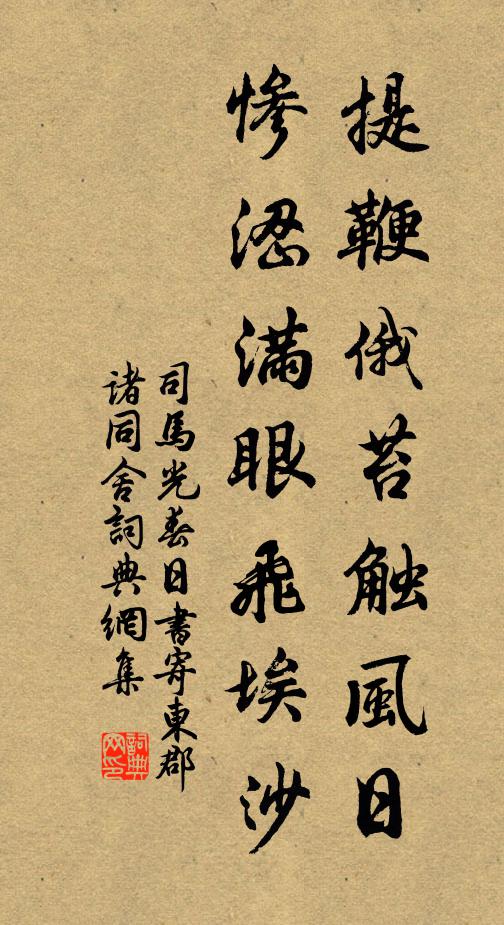 提鞭俄苔触風日
慘涊满眼飛埃沙
司馬光春日書寄東郡
諸同舍詞典網集
詞典网印